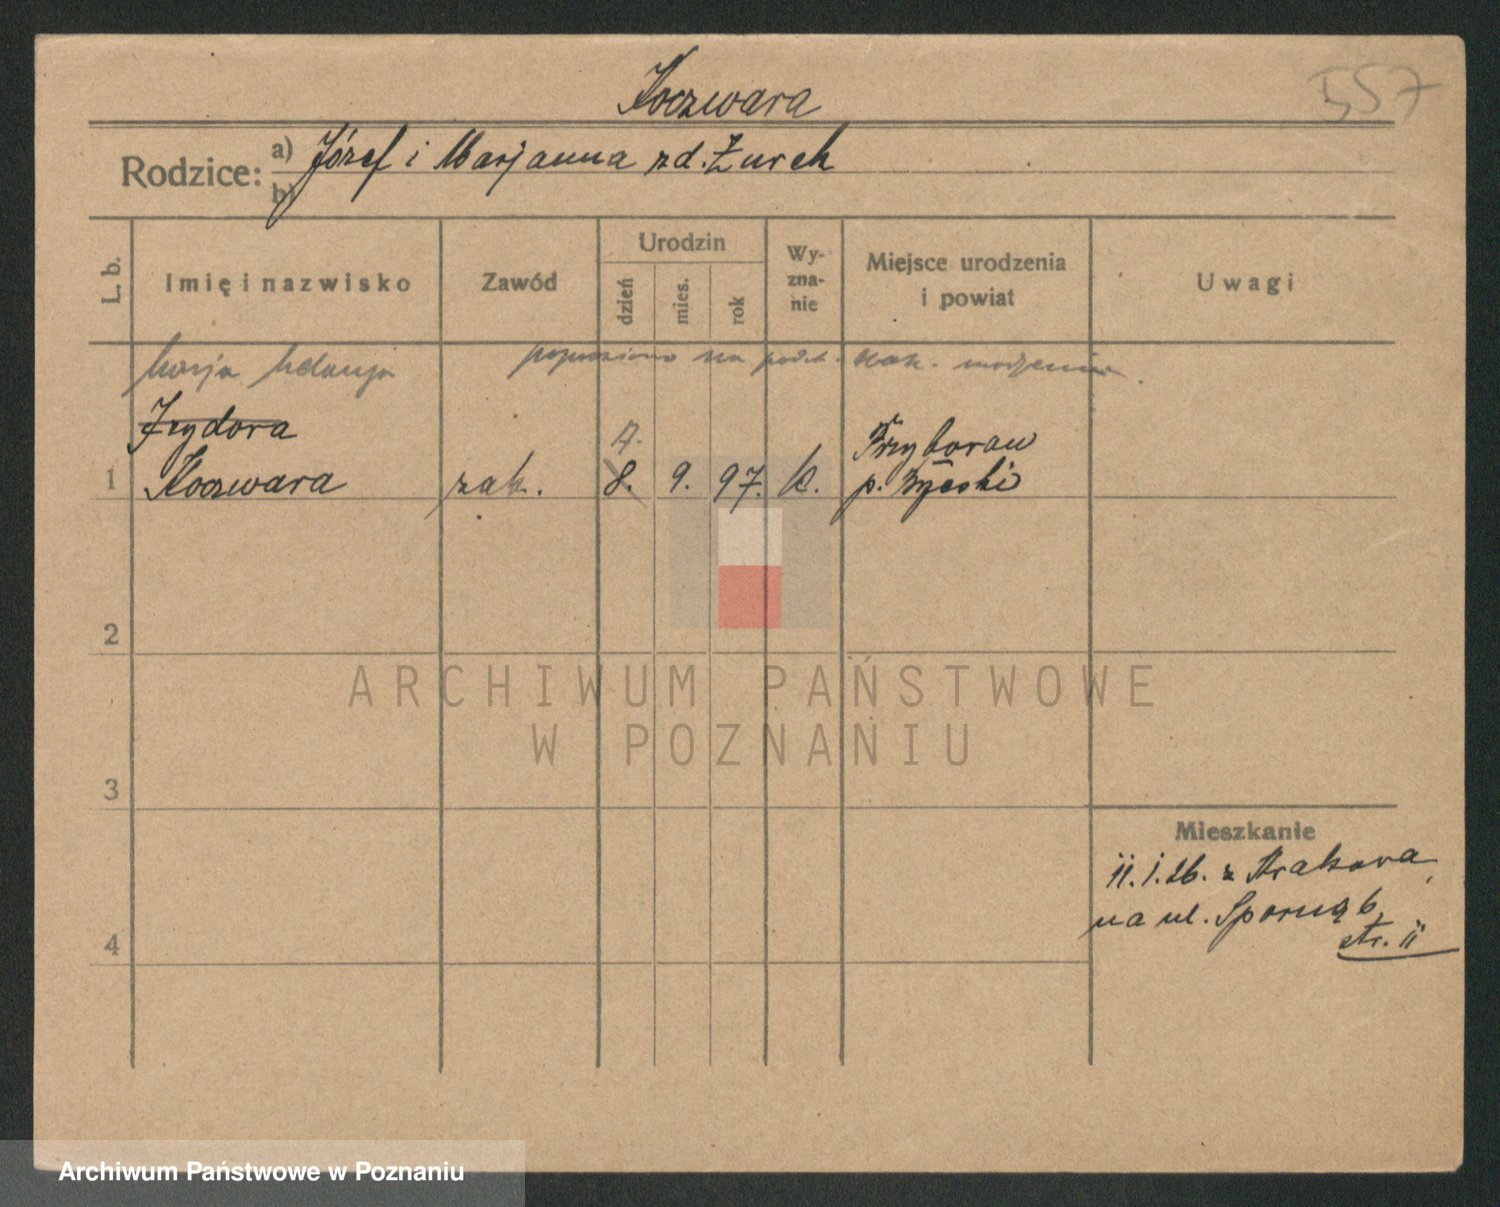 Koczwara
557
Rodzice: a) Józef i Marjanna zd. Żurek
b)
L. b.
Imię i nazwisko
Zawód
Urodzin
dzień
mies.
rok
Wy-
zna-
nie
Miejsce urodzenia
i powiat
Uwagi
poprawiono na podst.
Izydora
7.
Przyboraw
1 Koczwara zak. 8. 9. 97. k. p.
2
3
4
Mieszkanie
11.1.26. z Krakowa,
na ul. Sporną 6
str. 11
ARCHIWUM PAŃSTWOWE
W POZNANIU
Archiwum Państwowe w Poznaniu